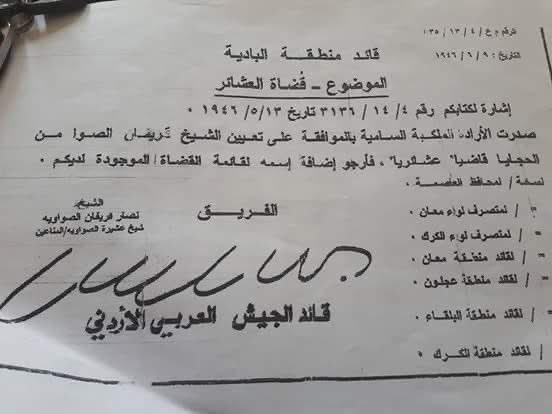 الرقم م ع / ٤ / ١٣ / ٣٥٠
التاريخ : ٩ / ٦ / ١٩٤٦
قائد منطقة البادية
الموضوع - قُضاة العشائر
إشارة لكتابكم رقم ١٤/٤ / ٣١٣٦ تاريخ ١٣ /٥/ ١٩٤٦ .
صدرت الأرادة الملكية السامية بالموافقة على تعيين الشيخ قريفان الصوا من
الحجايا قاضيا عشائريا ، فأرجو إضافة إسمه لقائمة القضاة الموجودة لديكم .
نسخة / لمحافظ العاصمة .
" / لمتصرف لواء معان .
" / لمتصرف لواء الكرك .
" / لقائد منطقة معان .
" / لقائد منطقة عجلون .
" / لقائد منطقة البلقاء .
" / لقائد منطقة الكرك .
الفريق
قائد الجيش العربي الأردني
الشيخ
نصار قريفان الصواويه
شيخ عشيرة الصواويه/المناعين